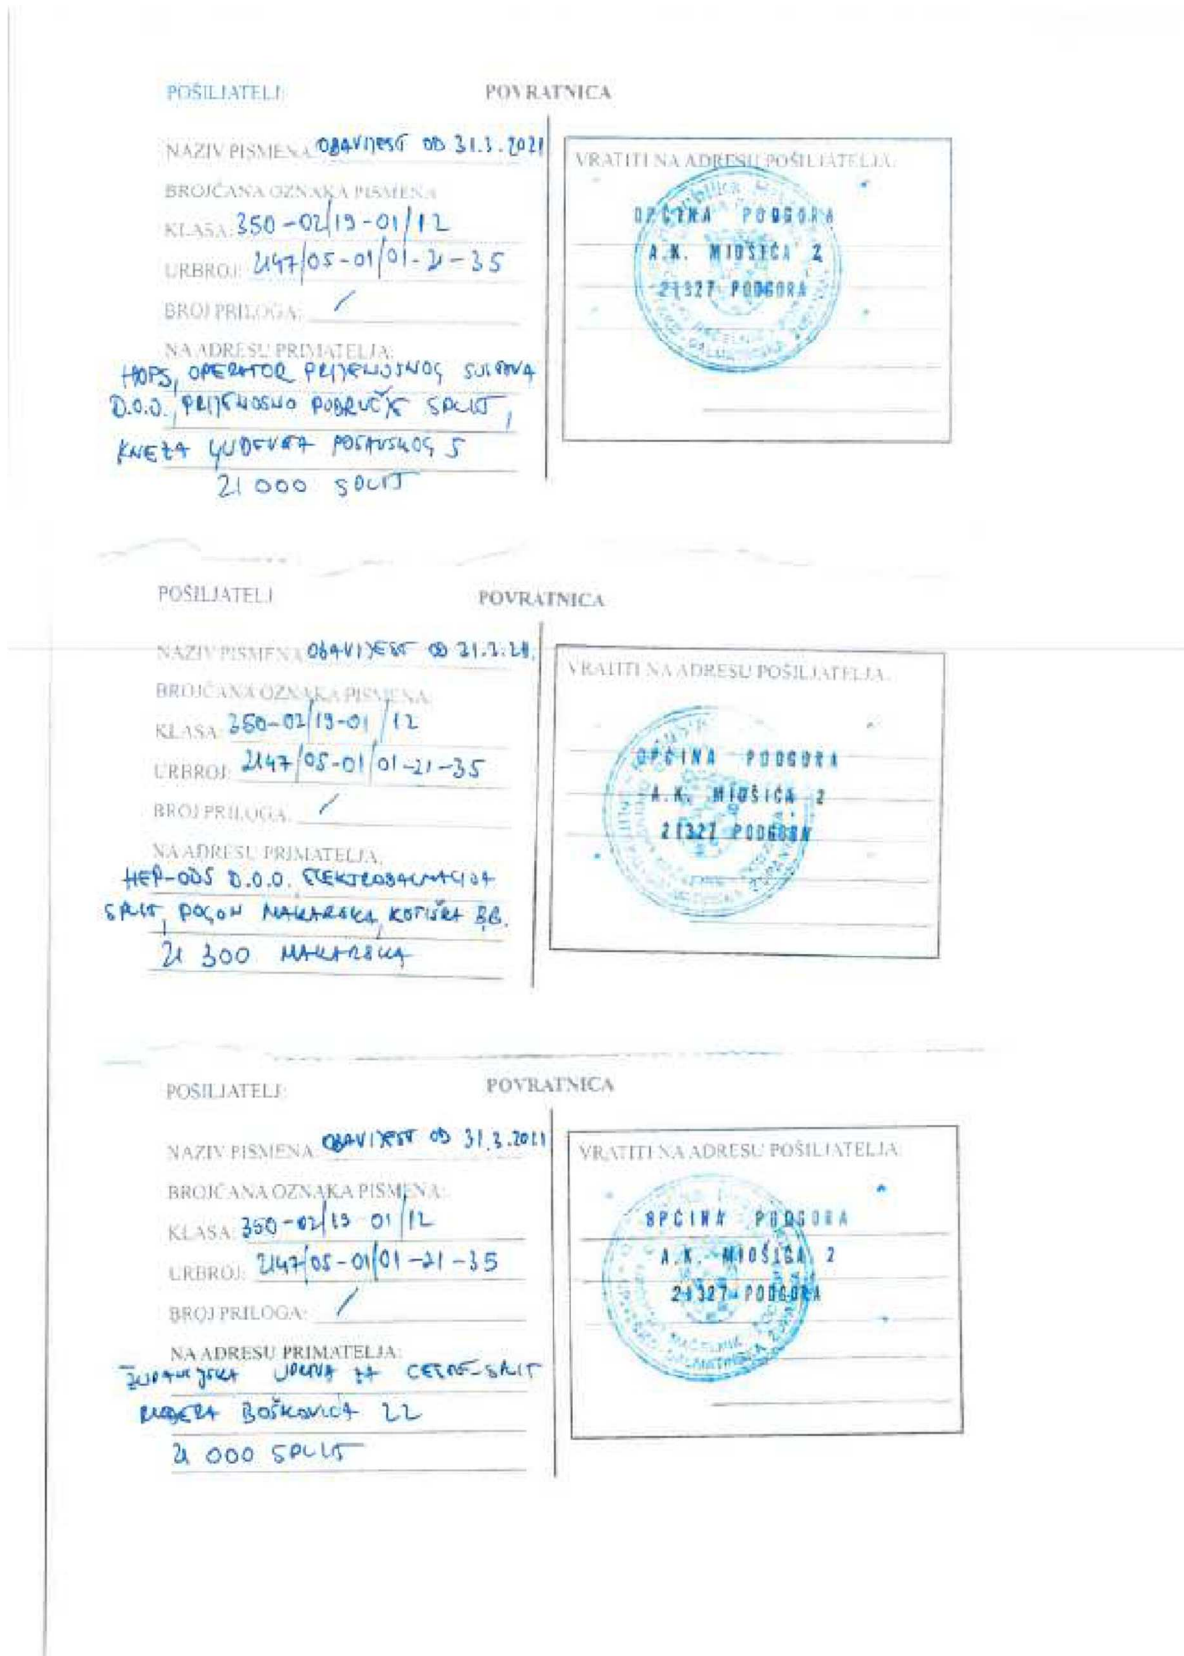 POŠILJATELJ:
POVRATNICA
NAZIV PISMENA: OBAVIJEST OD 31.3.2021
BROJČANA OZNAKA PISMENA:
KLASA: 350-02/19-01/12
URBROJ: 2147/05-01/01-21-35
BROJ PRILOGA: /
NA ADRESU PRIMATELJA:
HOPS, OPERATOR PRIJENOSNOG SUSTAVA
D.O.O., PRIJENOSNO PODRUČJE SPLIT,
KNEZA LJUDEVITA POSAVSKOG 5
21 000 SPLIT
VRATITI NA ADRESU POŠILJATELJA:
OPĆINA PODGORA
A.K. MIOŠIĆA 2
21327 PODGORA
POŠILJATELJ
POVRATNICA
NAZIV PISMENA OBAVIJEST OD 31.3.21.
BROJČANA OZNAKA PISMENA:
KLASA: 350-02/19-01/12
URBROJ: 2147/05-01/01-21-35
BROJ PRILOGA: /
NA ADRESU PRIMATELJA:
HEP-ODS D.O.O. ELEKTRODALMACIJA
SPLIT, POGON MAKARSKA, KOTIŠKA BB.
21 300 MAKARSKA
VRATITI NA ADRESU POŠILJATELJA:
OPĆINA PODGORA
A.K. MIOŠIĆA 2
21327 PODGORA
POŠILJATELJ:
POVRATNICA
NAZIV PISMENA: OBAVIJEST OD 31.3.2021
BROJČANA OZNAKA PISMENA:
KLASA: 350-02/19-01/12
URBROJ: 2147/05-01/01-21-35
BROJ PRILOGA: /
NA ADRESU PRIMATELJA:
ŽUPANIJSKA UPRAVA ZA CESTE-SPLIT
RUĐERA BOŠKOVIĆA 22
21 000 SPLIT
VRATITI NA ADRESU POŠILJATELJA:
OPĆINA PODGORA
A.K. MIOŠIĆA 2
21327 PODGORA